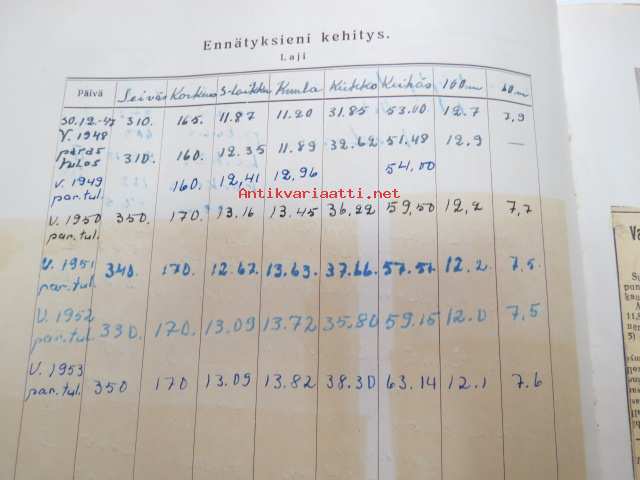 Ennätyksieni kehitys.
Laji
Päivä Seiväs Korkeus 3-loikka Kuula Kiekko Keihäs 100 m 60 m
30.12.-47 310. 165. 11.87 11.20 31.85 53.00 12.7 7,9
V. 1948
paras
tulos 310. 160. 12.35 11.89 32.62 51.48 12.9 —
V. 1949
par.tul. 160. 12,41 12,96 54.00
Antikvariaatti.net
V. 1950 350. 170. 13.16 13.45 36.22 59,50 12,2 7,7
par.tul.
V. 1951 340. 170. 12.67. 13.63. 37.66. 57.51. 12.2. 7,5.
par.tul.
V. 1952 330. 170. 13.09 13.72 35.80 59.15 12.0 7,5
par.tul.
V. 1953
par.tul. 350 170 13.09 13.82 38.30 63.14 12.1 7.6